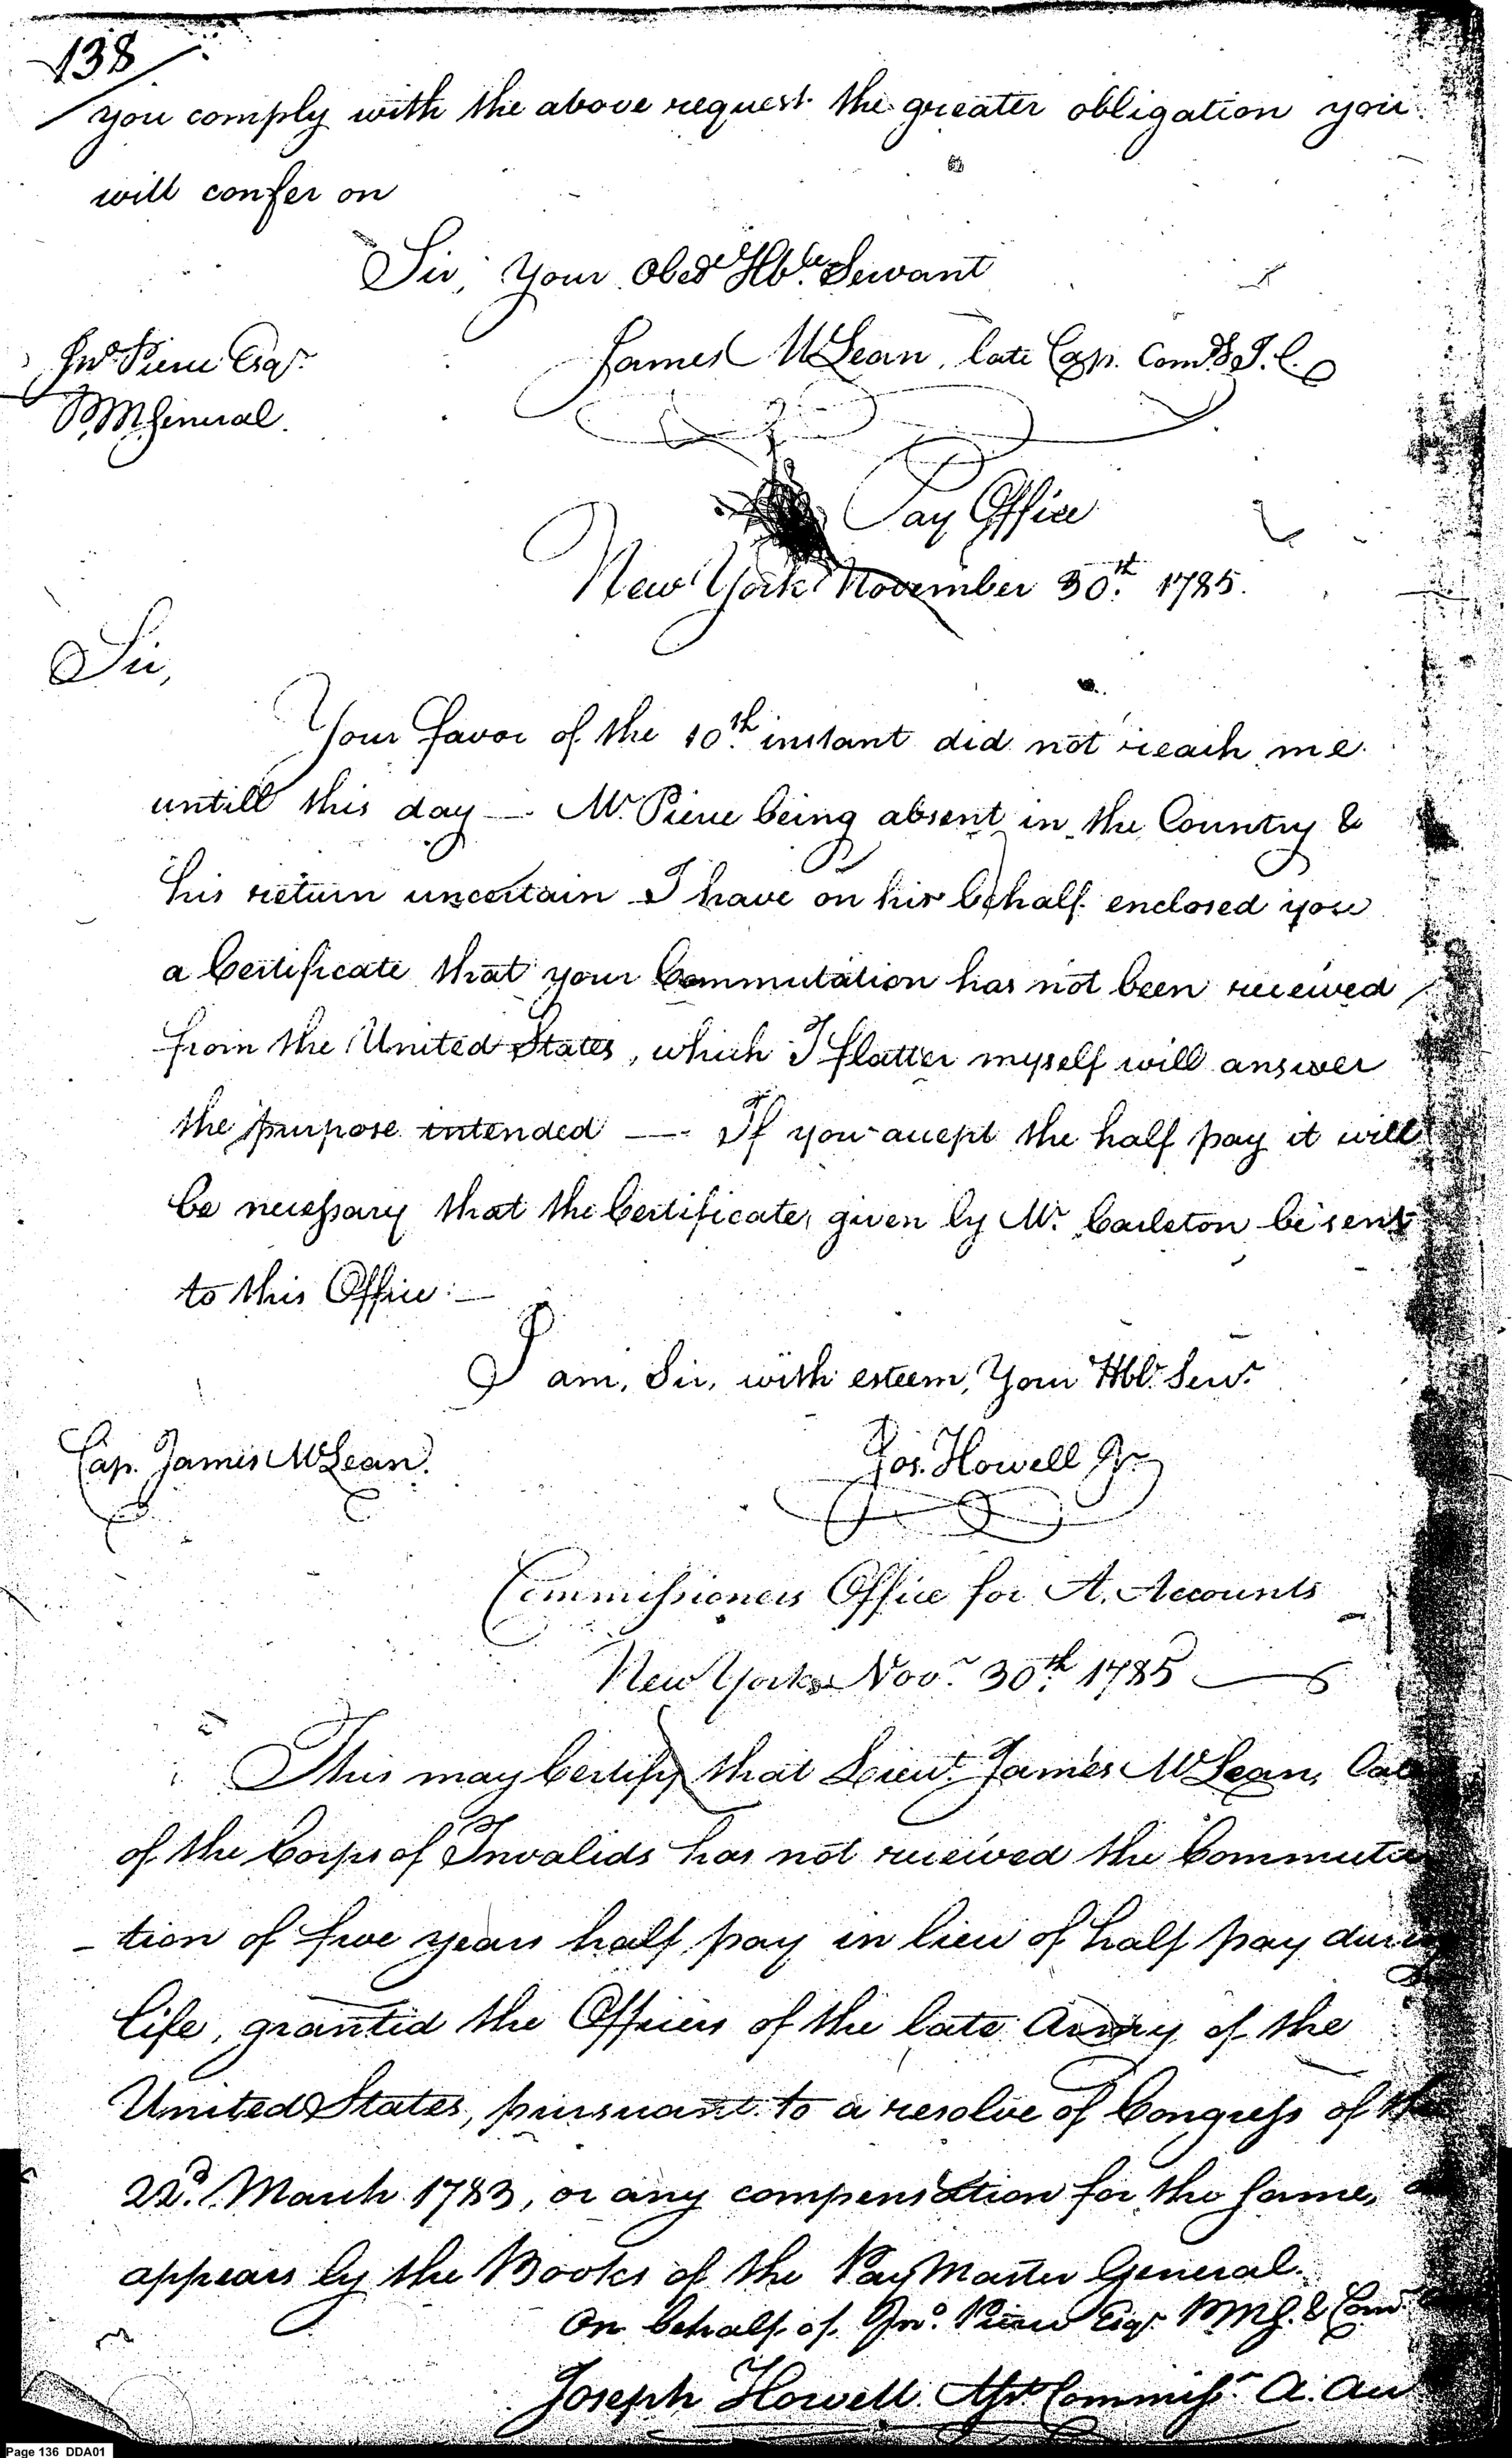 138
you comply with the above request the greater obligation you
will confer on
Sir, Your Obedt Hble Servant
James McLean, late Cap. Comdt I. C.
Jno Pierce Esqr.
P.M. General.
Pay Office
New York November 30th. 1785.
Sir,
Your favor of the 10th. instant did not reach me
untill this day — Mr. Pierce being absent in the Country &
his return uncertain I have on his behalf enclosed you
a Certificate that your Commutation has not been received
from the United States, which I flatter myself will answer
the purpose intended — If you accept the half pay it will
be necessary that the Certificate, given by Mr. Carleton be sent
to this Office: —
I am, Sir, with esteem, Your Hble. Servt.
Cap. James McLean.
Jos. Howell Jr
Commissioners Office for A. Accounts
New York Novr. 30th. 1785
This may Certify that Lieut. James McLean, late
of the Corps of Invalids has not received the Commuta
-tion of five years half pay in lieu of half pay during
life, granted the Officers of the late Army of the
United States, pursuant to a resolve of Congress of the
22d. March 1783, or any compensation for the same,
appears by the Books of the PayMaster General.
On behalf of Jno. Pierce Esqr. P.M.G. & Comr.
Joseph Howell Asst Commissr. A. Acc
Page 136 DDA01